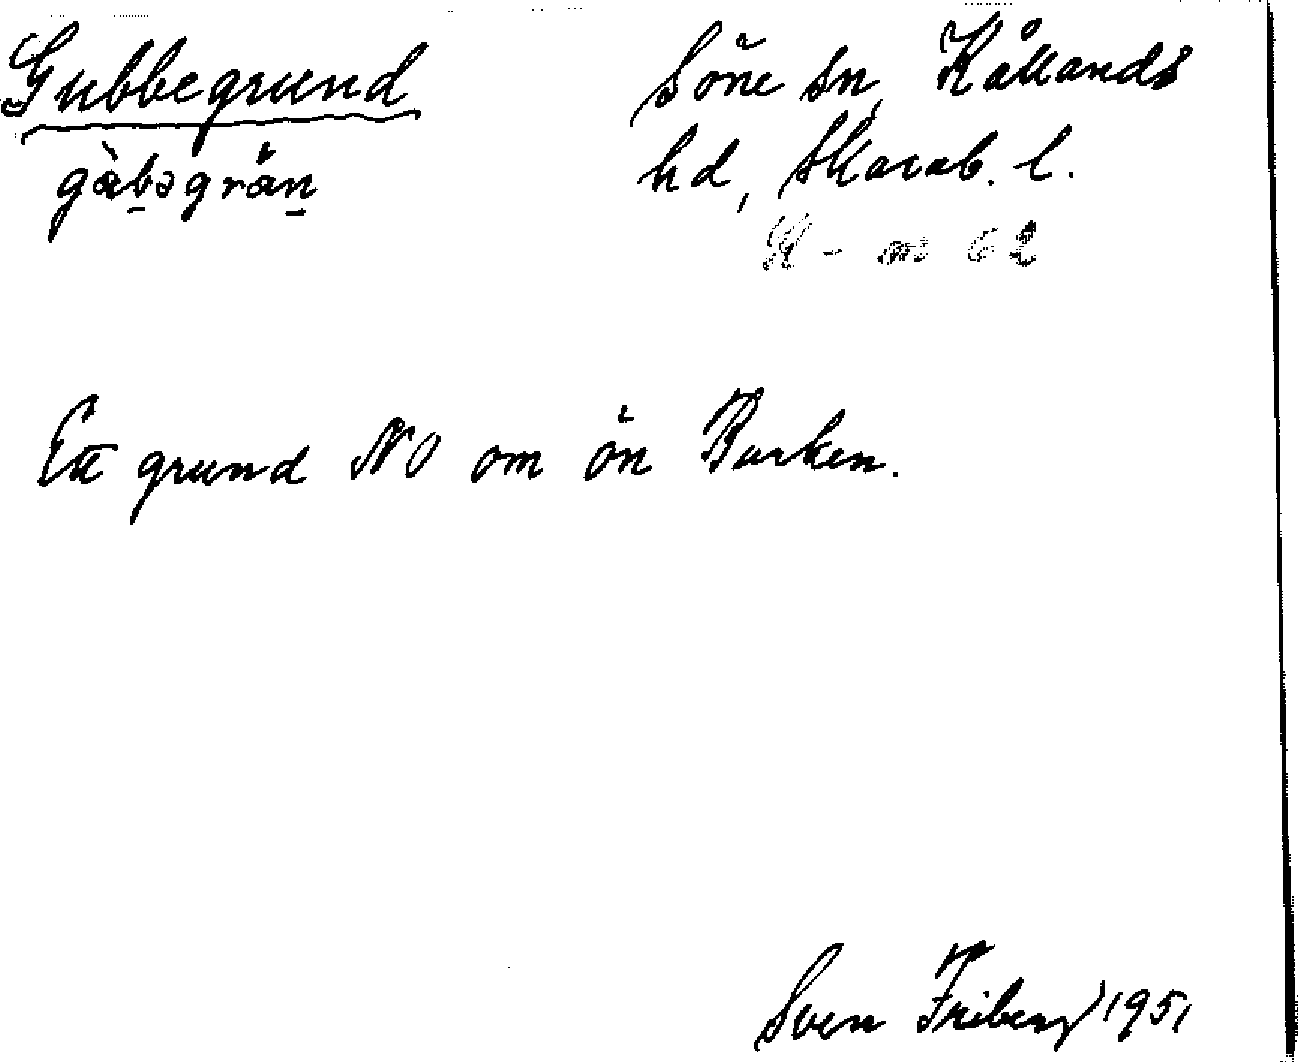 Gubbegrund
Söne sn, Kållands
hd, Skarab. l.
Ett grund NO om ön Burken.
Sven Friberg 1951